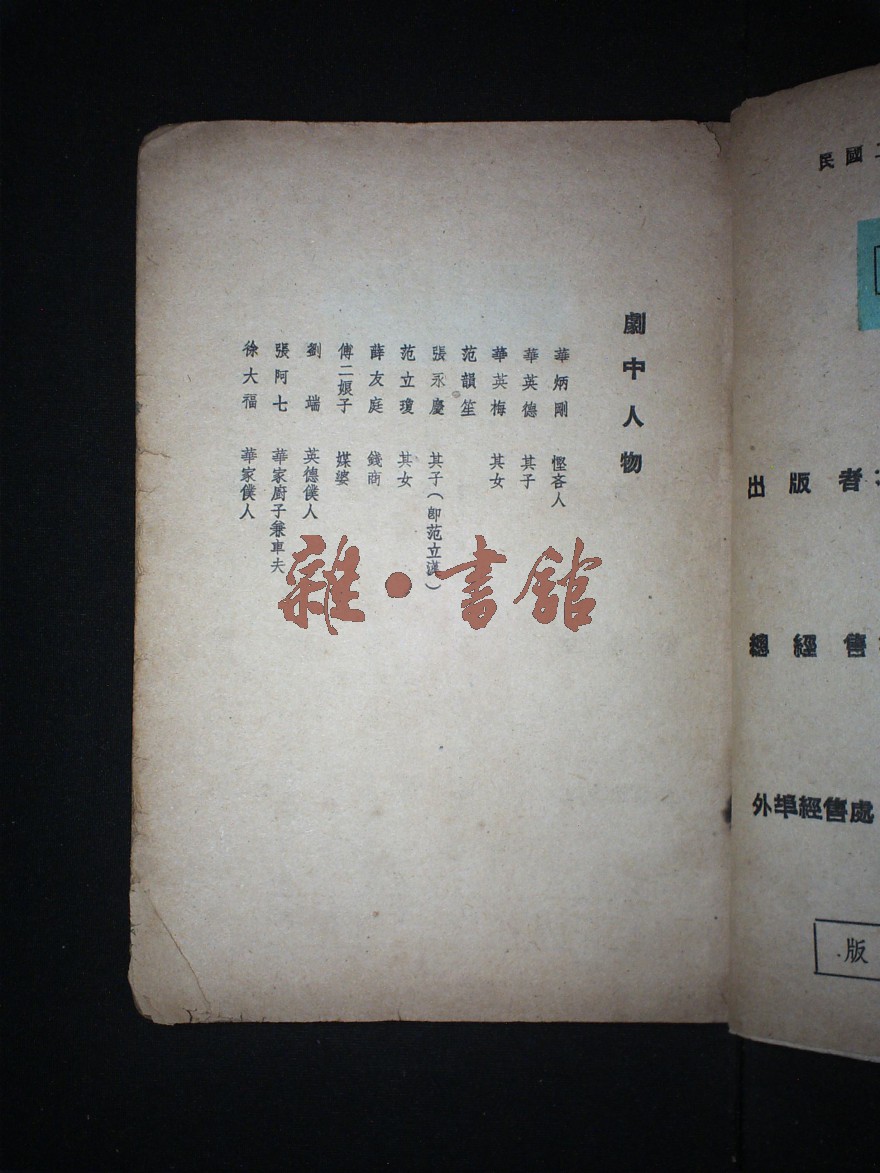 劇中人物
華炳剛 慳吝人
華英德 其子
華英梅 其女
范韻笙
張永慶 其子(卽范立漢)
范立瓊 其女
薛友庭 錢商
傅二娘子 媒婆
劉瑞 英德僕人
張阿七 華家廚子兼車夫
徐大福 華家僕人
雜·書館
民國
出版者
總經售
外埠經售處
版